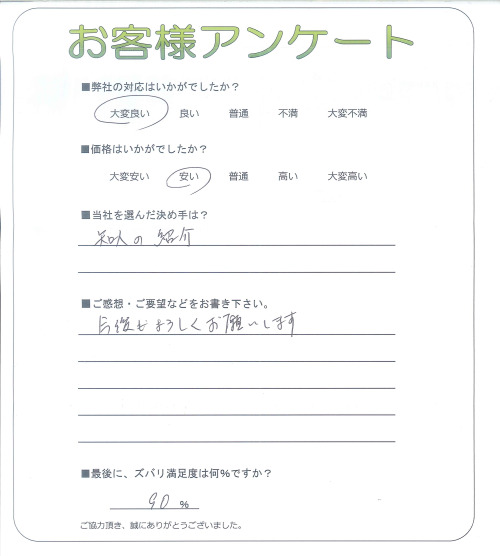 お客様アンケート
■弊社の対応はいかがでしたか？
大変良い 良い 普通 不満 大変不満
■価格はいかがでしたか？
大変安い 安い 普通 高い 大変高い
■当社を選んだ決め手は？
知人の紹介
■ご感想・ご要望などをお書き下さい。
今後もよろしくお願いします
■最後に、ズバリ満足度は何％ですか？
90 %
ご協力頂き、誠にありがとうございました。